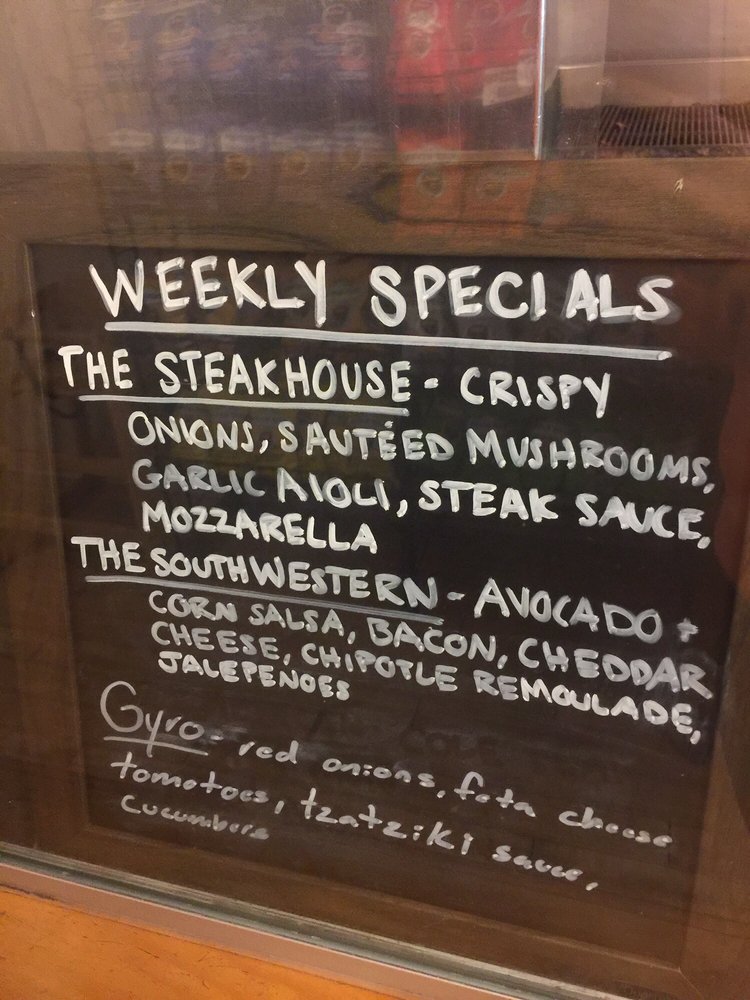 WEEKLY SPECIALS
THE STEAKHOUSE - CRISPY
ONIONS, SAUTÉED MUSHROOMS,
GARLIC AIOLI, STEAK SAUCE,
MOZZARELLA
THE SOUTHWESTERN - AVOCADO +
CORN SALSA, BACON, CHEDDAR
CHEESE, CHIPOTLE REMOULADE,
JALEPENOES
Gyro - red onions, feta cheese
tomatoes, tzatziki sauce,
cucumbers